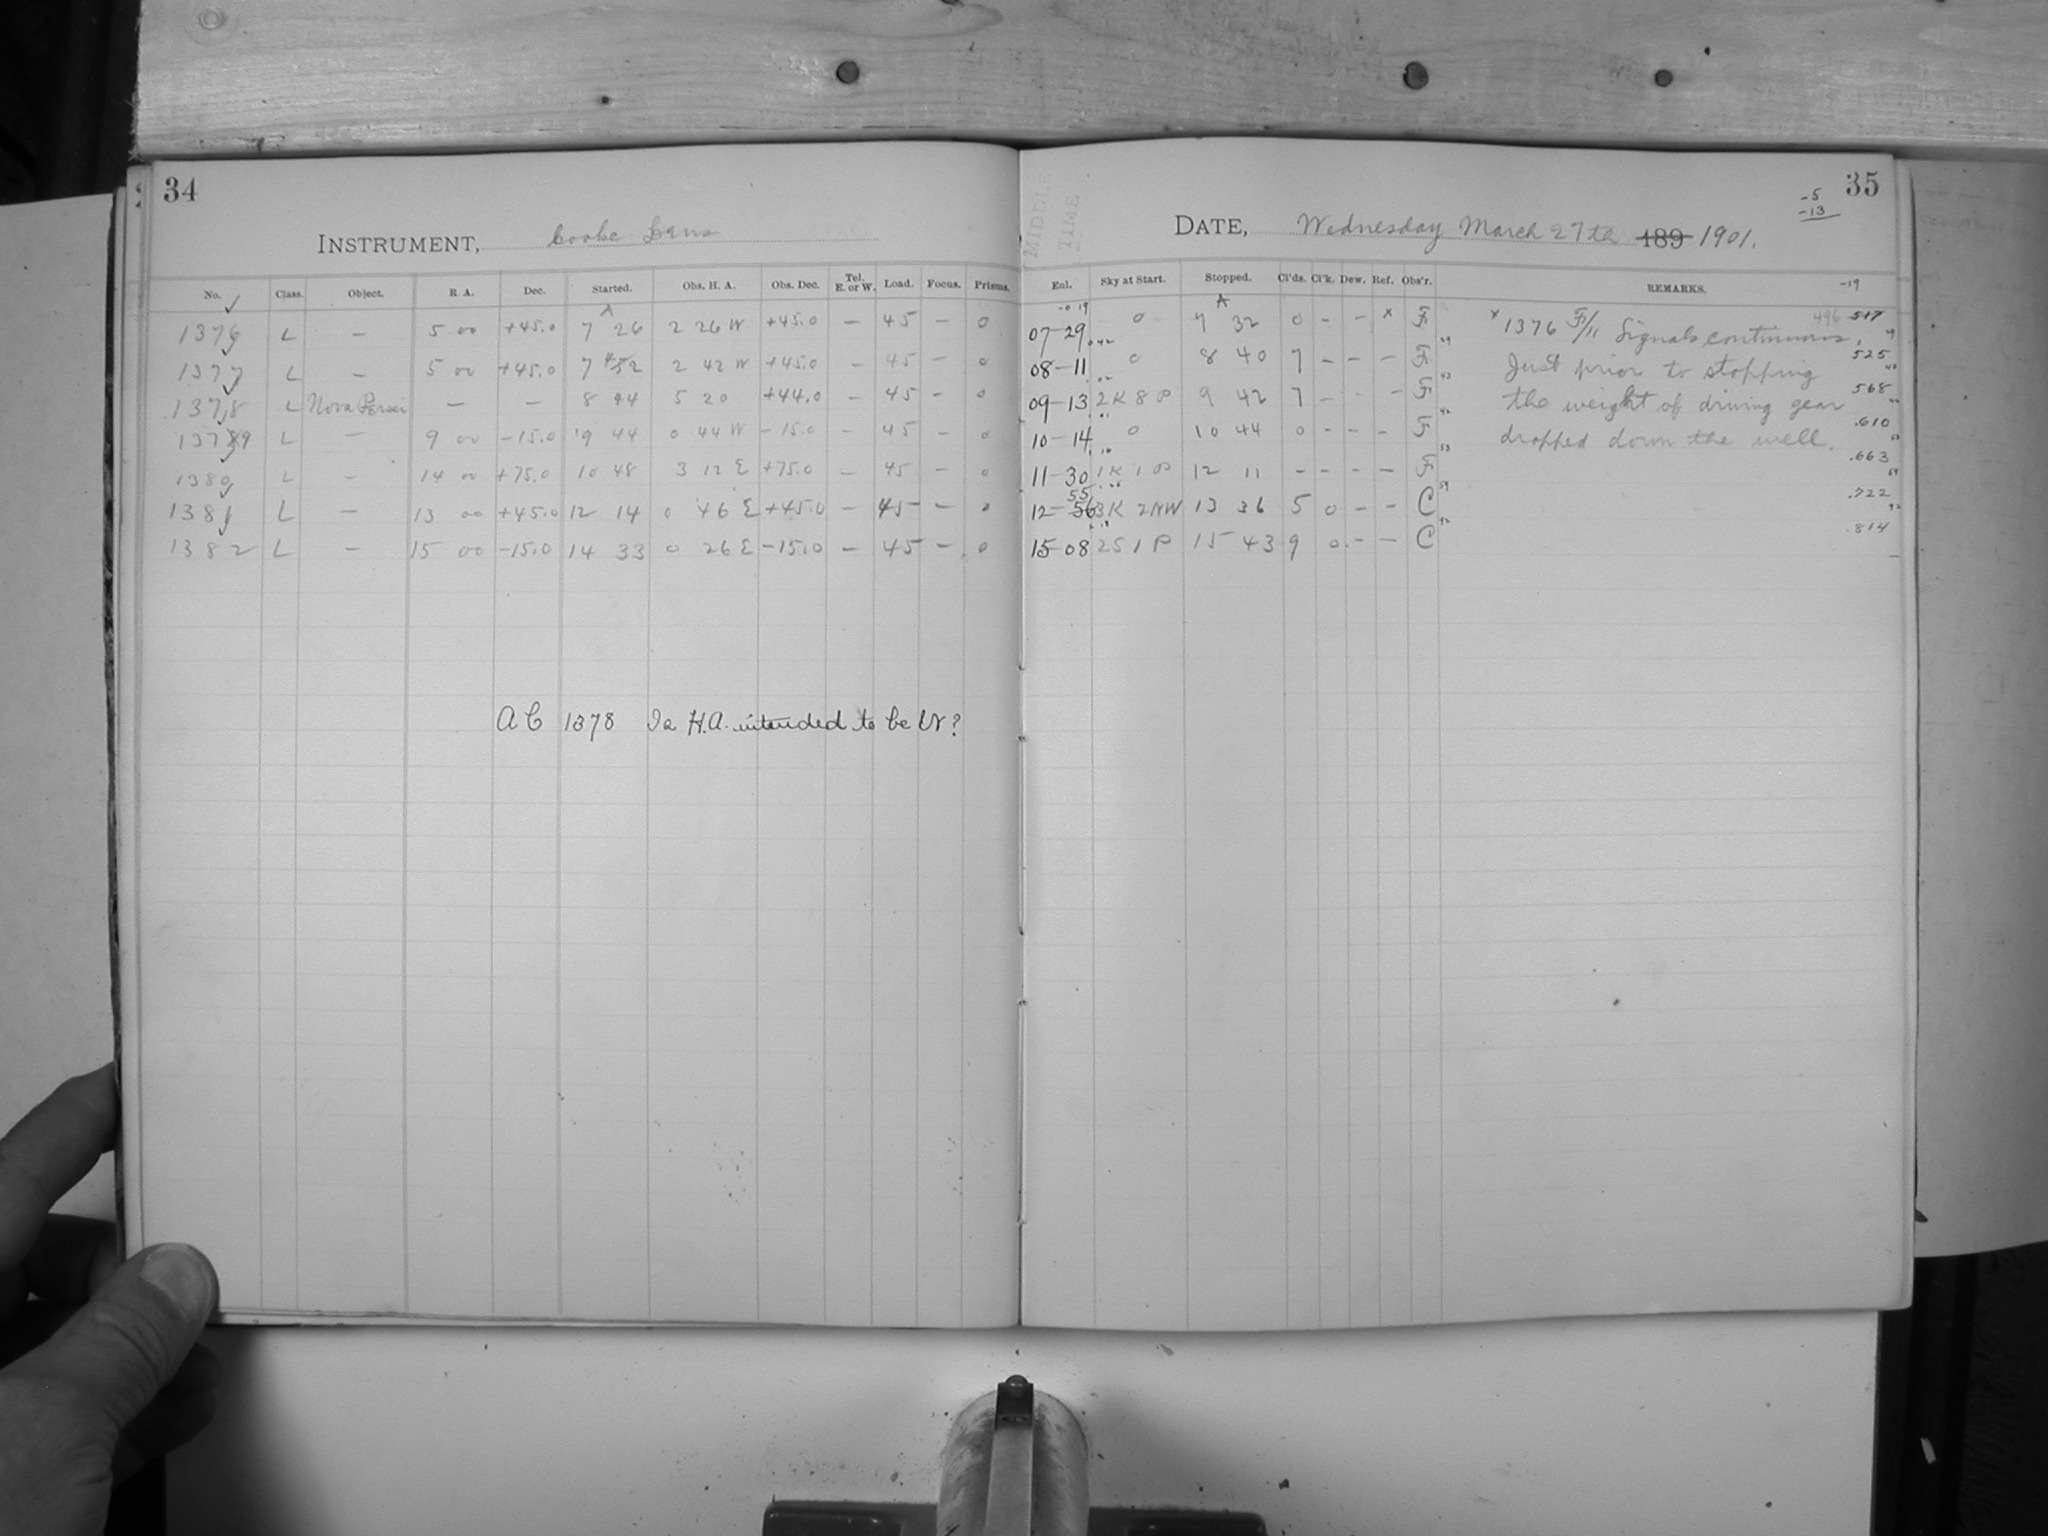 34
INSTRUMENT, Cooke Lens
No. Class. Object. R. A. Dec. Started. Obs. H. A. Obs. Dec. Tel. E. or W. Load. Focus. Prisms.
1376 L — 5 00 +45.0 7 26 2 26 W +45.0 — 45 — 0
1377 L — 5 00 +45.0 7 42 2 42 W +45.0 — 45 — 0
1378 L Nova Persei — — 8 44 5 20 +44.0 — 45 — 0
1379 L — 9 00 -15.0 9 44 0 44 W -15.0 — 45 — 0
1380 L — 14 00 +75.0 10 48 3 12 E +75.0 — 45 — 0
1381 L — 13 00 +45.0 12 14 0 46 E +45.0 — 45 — 0
1382 L — 15 00 -15.0 14 33 0 26 E -15.0 — 45 — 0
AC 1378 Is H.A. intended to be W?
35
-5
-13
MIDDLE
TIME
DATE, Wednesday March 27th 189 1901.
Enl. Sky at Start. Stopped. Cl'ds. Cl'k. Dew. Ref. Obs'r. REMARKS.
-19
07-29 0 7 32 0 - - x F
08-11 0 8 40 7 - - - F
09-13 2K 8P 9 42 7 - - - F
10-14 0 10 44 0 - - - F
11-30 1K 1P 12 11 - - - - F
55
12-56 3K 2NW 13 36 5 0 - - C
15-08 2S 1P 15 43 9 0 - - C
x 1376 F/11 Signals continuous.
Just prior to stopping
the weight of driving gear
dropped down the well.
496 517
525
568
.610
.663
.722
.814